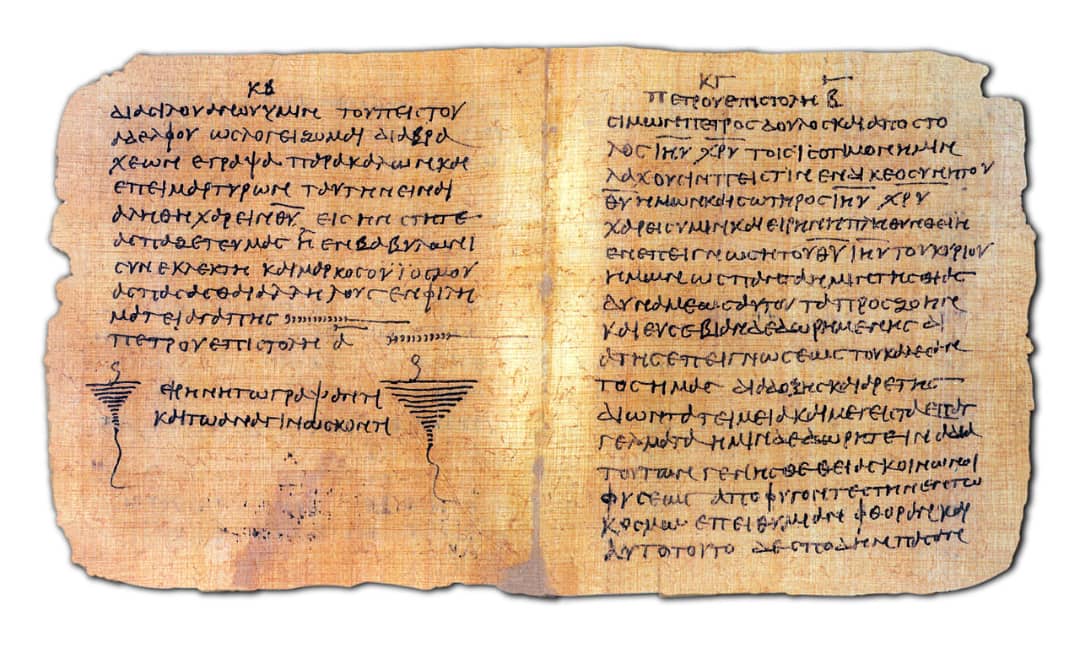 ΚΒ
ΔΙΑ ΣΙΛΟΥΑΝΟΥ ΥΜΙΝ ΤΟΥ ΠΕΙΣΤΟΥ
ΑΔΕΛΦΟΥ ΩΣ ΛΟΓΕΙΖΟΜΑΙ ΔΙΑ ΒΡΑ
ΧΕΩΝ ΕΓΡΑΨΑ ΠΑΡΑΚΑΛΩΝ ΚΑΙ
ΕΠΕΙΜΑΡΤΥΡΩΝ ΤΑΥΤΗΝ ΕΙΝΑΙ
ΑΛΗΘΗ ΧΑΡΕΙΝ Θ̅Υ̅ ΕΙΣ ΗΝ ΣΤΗΤΕ
ΑΣΠΑΖΕΤΕ ΥΜΑΣ Η ΕΝ ΒΑΒΥΛΩΝΙ
ΣΥΝΕΚΛΕΚΤΗ ΚΑΙ ΜΑΡΚΟΣ Ο ΥΙΟΣ ΜΟΥ
ΑΣΠΑΣΑΣΘΑΙ ΑΛΛΗΛΟΥΣ ΕΝ ΦΙΛΗ
ΜΑΤΕΙ ΑΓΑΠΗΣ
ΠΕΤΡΟΥ ΕΠΙΣΤΟΛΗ Α̅
ΕΙΡΗΝΗ ΤΩ ΓΡΑΨΑΝΤΙ
ΚΑΙ ΤΩ ΑΝΑΓΙΝΩΣΚΟΝΤΙ
ΚΓ
ΠΕΤΡΟΥ ΕΠΙΣΤΟΛΗ Β̅
ΣΙΜΩΝ ΠΕΤΡΟΣ ΔΟΥΛΟΣ ΚΑΙ ΑΠΟΣΤΟ
ΛΟΣ Ι̅Η̅Υ̅ Χ̅Ρ̅Υ̅ ΤΟΙΣ ΙΣΟΤΙΜΟΝ ΗΜΙΝ
ΛΑΧΟΥΣΙΝ ΠΕΙΣΤΙΝ ΕΝ ΔΙΚΕΟΣΥΝΗ ΤΟΥ
Θ̅Υ̅ ΗΜΩΝ ΚΑΙ ΣΩΤΗΡΟΣ Ι̅Η̅Υ̅ Χ̅Ρ̅Υ̅
ΧΑΡΕΙΣ ΥΜΙΝ ΚΑΙ ΕΙΡΗΝΗ ΠΛΗΘΥΝΘΕΙΗ
ΕΝ ΕΠΕΙΓΝΩΣΗ ΤΟΥ Θ̅Υ̅ Ι̅Η̅Υ̅ ΤΟΥ ΚΥΡΙΟΥ
ΗΜΩΝ ΩΣ ΠΑΝΤΑ ΗΜΙΝ ΤΗΣ ΘΙΑΣ
ΔΥΝΑΜΕΩΣ ΑΥΤΟΥ ΤΑ ΠΡΟΣ ΖΩΗΝ
ΚΑΙ ΕΥΣΕΒΙΑΝ ΔΕΔΩΡΗΜΕΝΗΣ ΔΙ
Α ΤΗΣ ΕΠΕΙΓΝΩΣΕΩΣ ΤΟΥ ΚΑΛΕΣΑΝ
ΤΟΣ ΗΜΑΣ ΔΙΑ ΔΟΞΗΣ ΚΑΙ ΑΡΕΤΗΣ
ΔΙ ΩΝ ΤΑ ΤΕΙΜΕΙΑ ΚΑΙ ΜΕΓΕΙΣΤΑ ΕΠΑΓ
ΓΕΛΜΑΤΑ ΗΜΙΝ ΔΕΔΩΡΗΤΕ ΙΝΑ ΔΙΑ
ΤΟΥΤΩΝ ΓΕΝΗΣΘΕ ΘΕΙΑΣ ΚΟΙΝΩΝΟΙ
ΦΥΣΕΩΣ ΑΠΟΦΥΓΟΝΤΕΣ ΤΗΝ ΕΝ ΤΩ
ΚΟΣΜΩ ΕΠΕΙΘΥΜΙΑΝ ΦΘΟΡΑΝ ΚΑΙ
ΑΥΤΟ ΤΟΥΤΟ ΔΕ ΣΠΟΔΗΝ ΠΑΣΑΝ